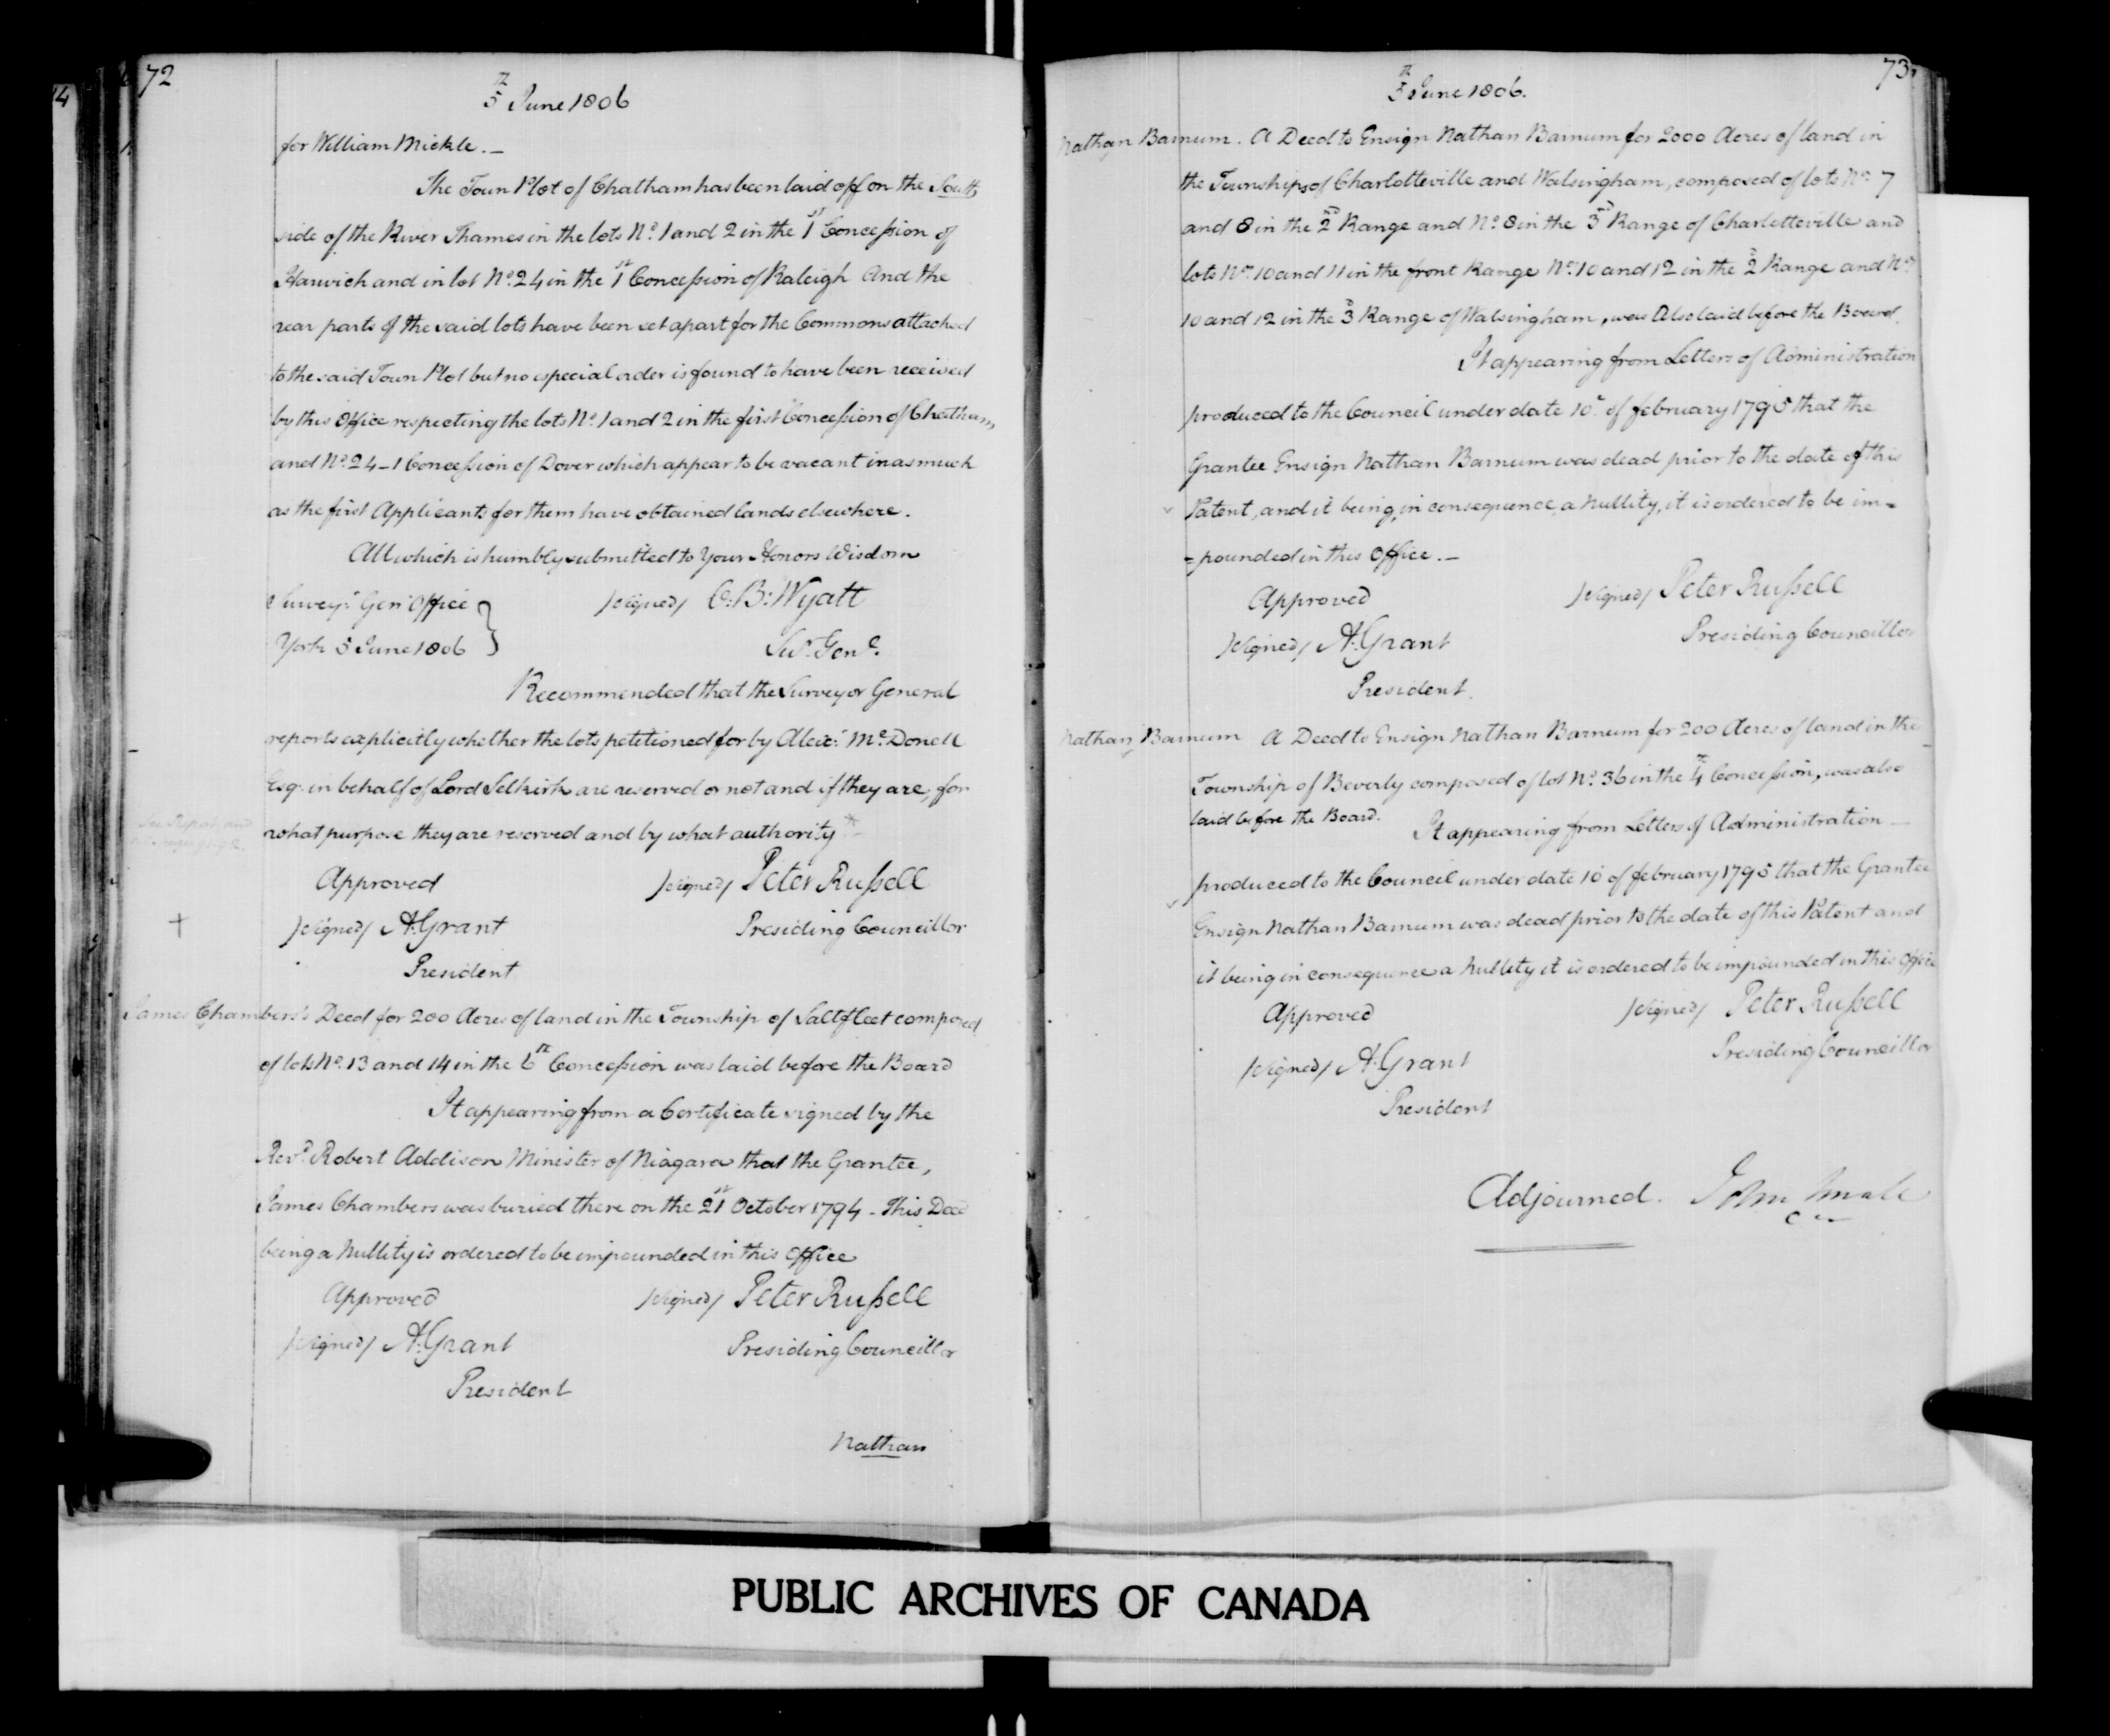 72
5th June 1806
for William Mickle. —
The Town Plot of Chatham has been laid off on the South
side of the River Thames in the lots No. 1 and 2 in the 1st Concession of
Harwich and in lot No. 24 in the 1st Concession of Raleigh And the
rear parts of the said lots have been set apart for the Commons attached
to the said Town Plot but no especial order is found to have been received
by this Office respecting the lots No. 1 and 2 in the first Concession of Chatham
and No. 24 – 1 Concession of Dover which appear to be vacant inasmuch
as the first Applicants for them have obtained lands elsewhere.
All which is humbly submitted to Your Honors Wisdom
Surveyr. Genl. Office } /signed/ C. B. Wyatt
York 5 June 1806 } Sur. Genl.
Recommended that the Surveyor General
reports explicitly whether the lots petitioned for by Alexr. McDonell
Esqr. in behalf of Lord Selkirk are reserved or not and if they are, for
what purpose they are reserved and by what authority *
See Report and
Approved /signed/ Peter Russell
/signed/ A. Grant Presiding Councillor
President
James Chambers's Deed for 200 Acres of land in the Township of Saltfleet composed
of lots No. 13 and 14 in the 6th Concession was laid before the Board
It appearing from a Certificate signed by the
Revd. Robert Addison Minister of Niagara that the Grantee,
James Chambers was buried there on the 21st October 1794 – This Deed
being a Nullity is ordered to be impounded in this Office
Approved /signed/ Peter Russell
/signed/ A. Grant Presiding Councillor
President
Nathan
73
5th June 1806.
Nathan Barnum. A Deed to Ensign Nathan Barnum for 2000 Acres of land in
the Townships of Charlotteville and Walsingham, composed of lots No. 7
and 8 in the 2nd Range and No. 8 in the 3rd Range of Charlotteville and
lots Nos. 10 and 11 in the front Range Nos. 10 and 12 in the 2d Range and Nos.
10 and 12 in the 3d Range of Walsingham, was Also laid before the Board.
It appearing from Letters of Administration
produced to the Council under date 10th of february 1795 that the
Grantee Ensign Nathan Barnum was dead prior to the date of this
Patent, and it being, in consequence, a Nullity, it is ordered to be im=
=pounded in this Office. —
Approved /signed/ Peter Russell
/signed/ A. Grant Presiding Councillor
President.
Nathan Barnum A Deed to Ensign Nathan Barnum for 200 Acres of land in the
Township of Beverly composed of lot No. 36 in the 4th Concession, was also
laid before the Board. It appearing from Letters of Administration —
produced to the Council under date 10 of february 1795 that the Grantee
Ensign Nathan Barnum was dead prior to the date of this Patent and
it being in consequence a Nullity it is ordered to be impounded in this Office
Approved /signed/ Peter Russell
/signed/ A. Grant Presiding Councillor
President
Adjourned. John Small
PUBLIC ARCHIVES OF CANADA